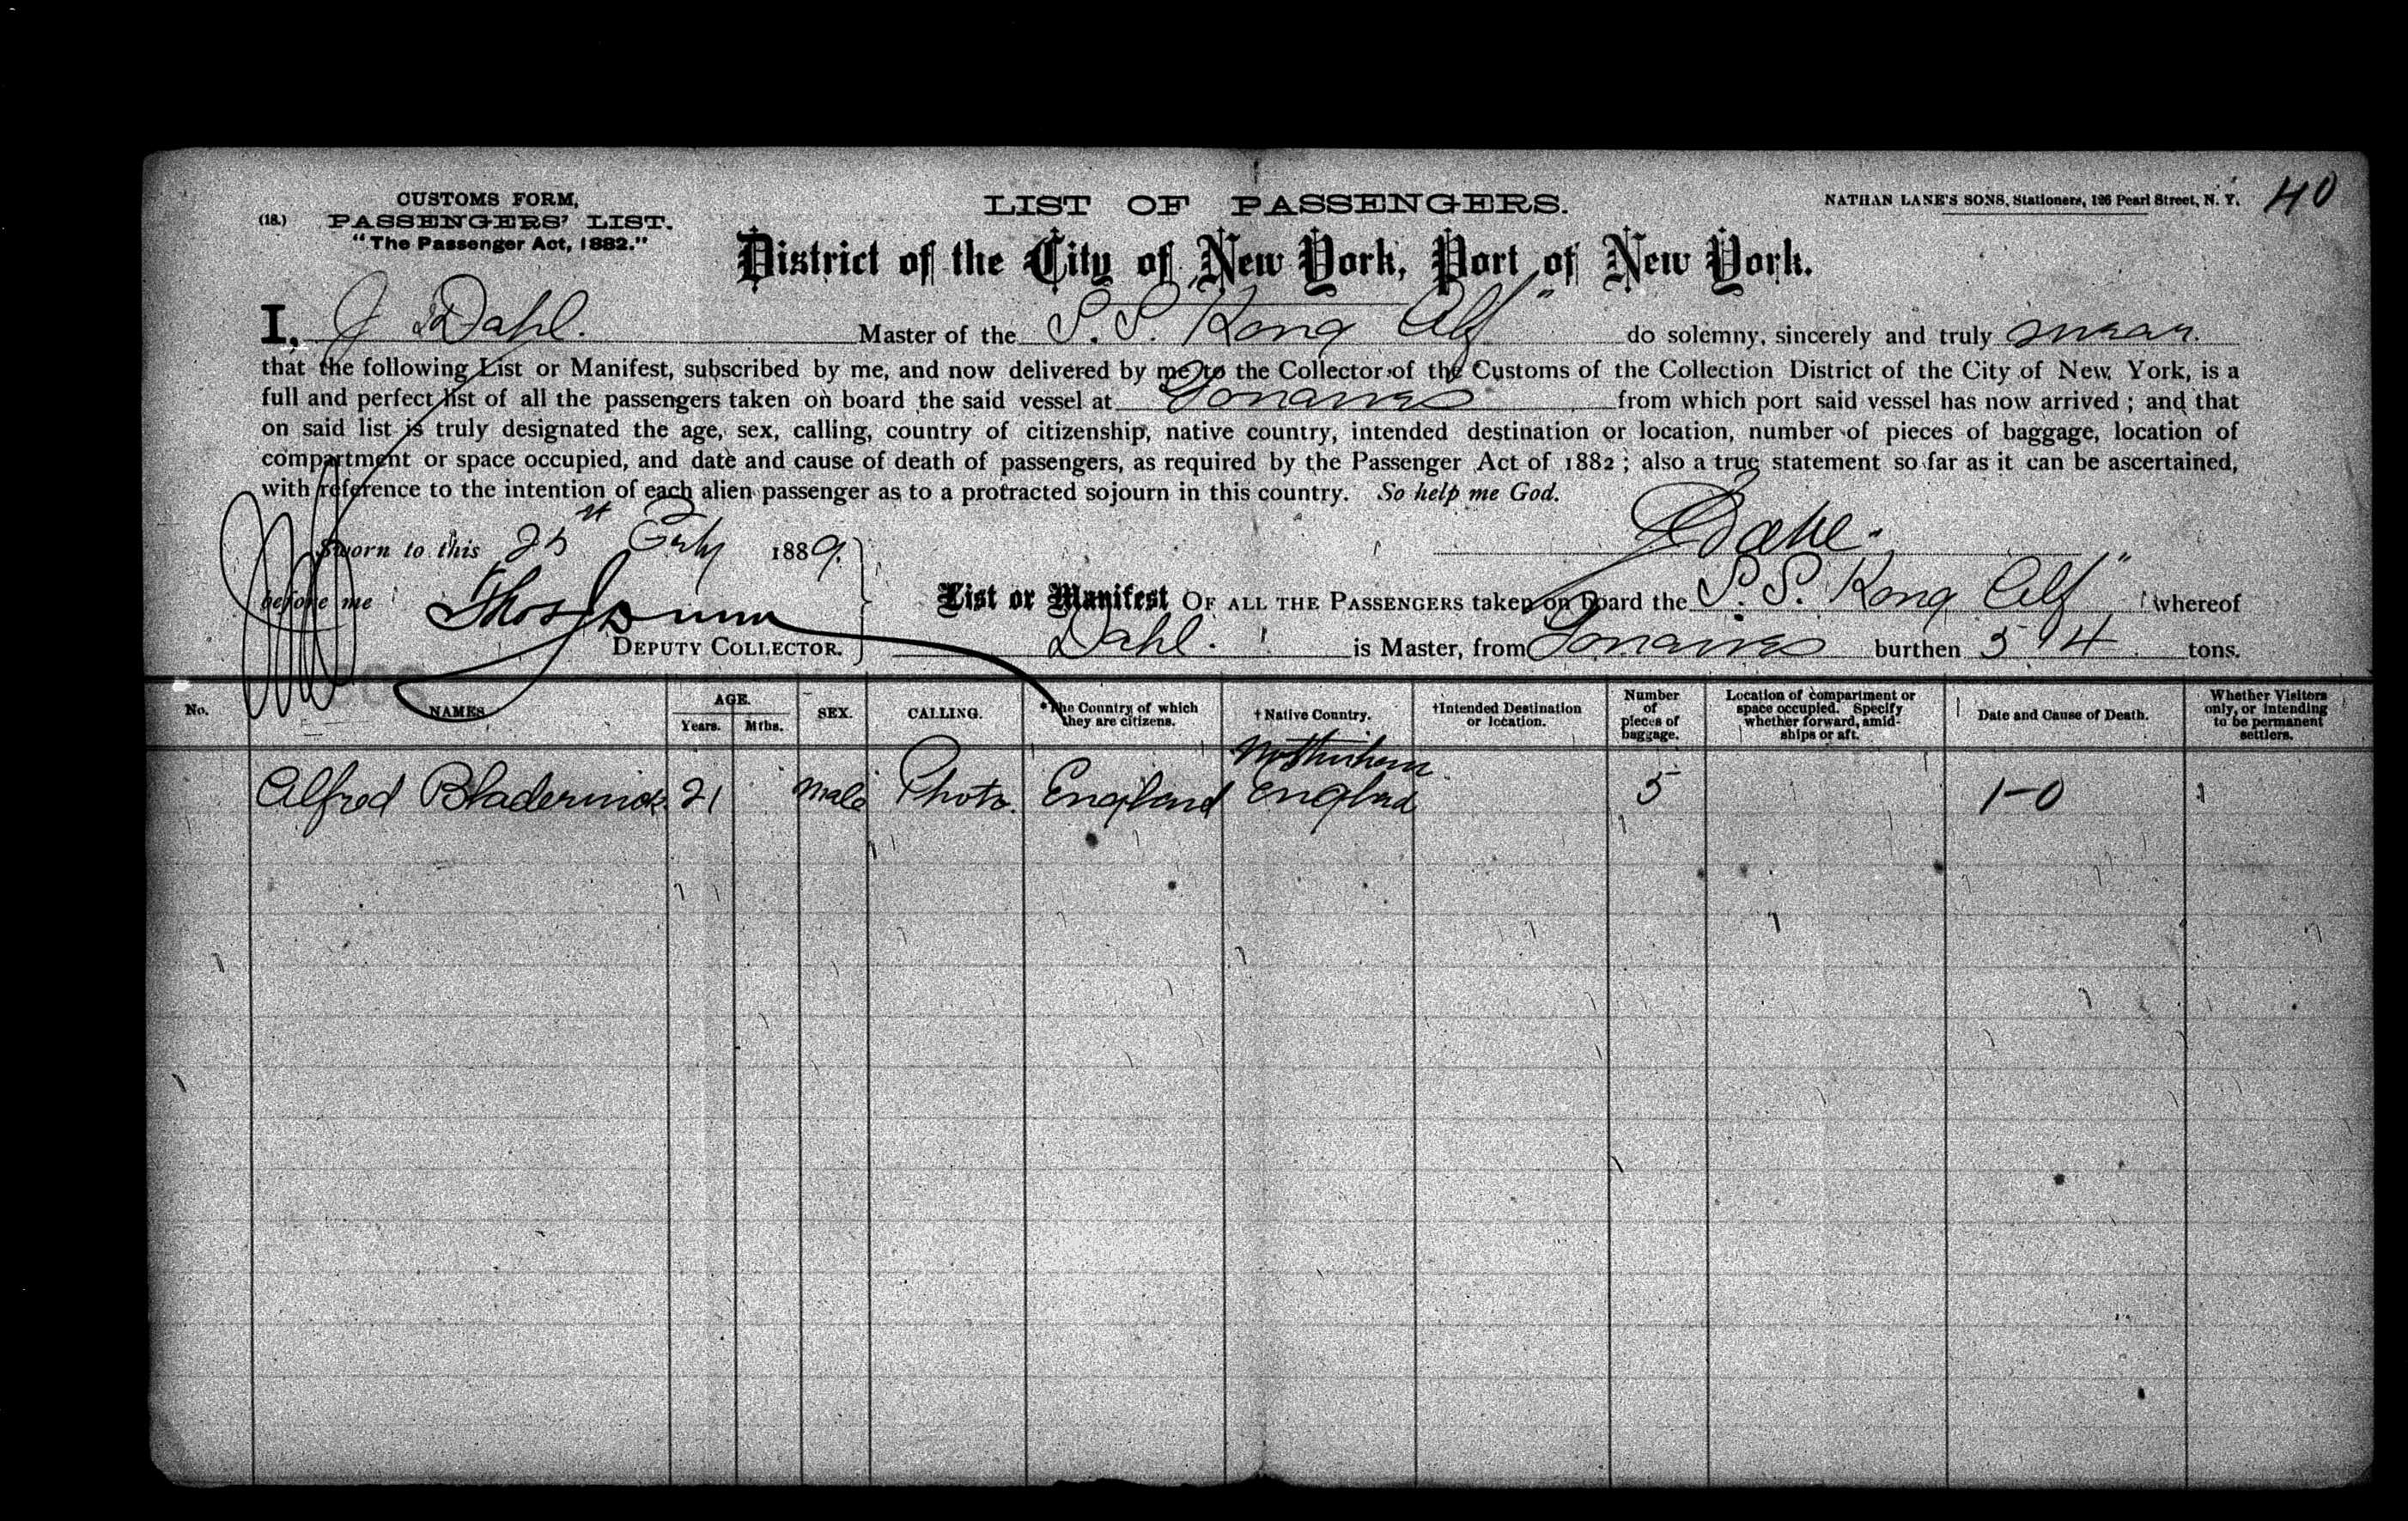 40
CUSTOMS FORM,
(18.) PASSENGERS' LIST.
"The Passenger Act, 1882."
LIST OF PASSENGERS.
NATHAN LANE'S SONS, Stationers, 126 Pearl Street, N. Y.
District of the City of New York, Port of New York.
I, J Dahl. Master of the S. S. Kong Alf" do solemny, sincerely and truly swear.
that the following List or Manifest, subscribed by me, and now delivered by me to the Collector of the Customs of the Collection District of the City of New York, is a
full and perfect list of all the passengers taken on board the said vessel at Gonaives from which port said vessel has now arrived; and that
on said list is truly designated the age, sex, calling, country of citizenship, native country, intended destination or location, number of pieces of baggage, location of
compartment or space occupied, and date and cause of death of passengers, as required by the Passenger Act of 1882; also a true statement so far as it can be ascertained,
with reference to the intention of each alien passenger as to a protracted sojourn in this country. So help me God.
Sworn to this 25 1889.
J Dahl.
before me Thos Dunn
DEPUTY COLLECTOR.
List or Manifest OF ALL THE PASSENGERS taken on board the S. S. Kong Alf" whereof
Dahl. is Master, from Gonaives burthen 514 tons.
No. NAMES AGE. Years. Mths. SEX. CALLING. *The Country of which they are citizens. †Native Country. †Intended Destination or location. Number of pieces of baggage. Location of compartment or space occupied. Specify whether forward, amidships or aft. Date and Cause of Death. Whether Visitors only, or intending to be permanent settlers.
Alfred 21 Male Photo. England England 5 1-0